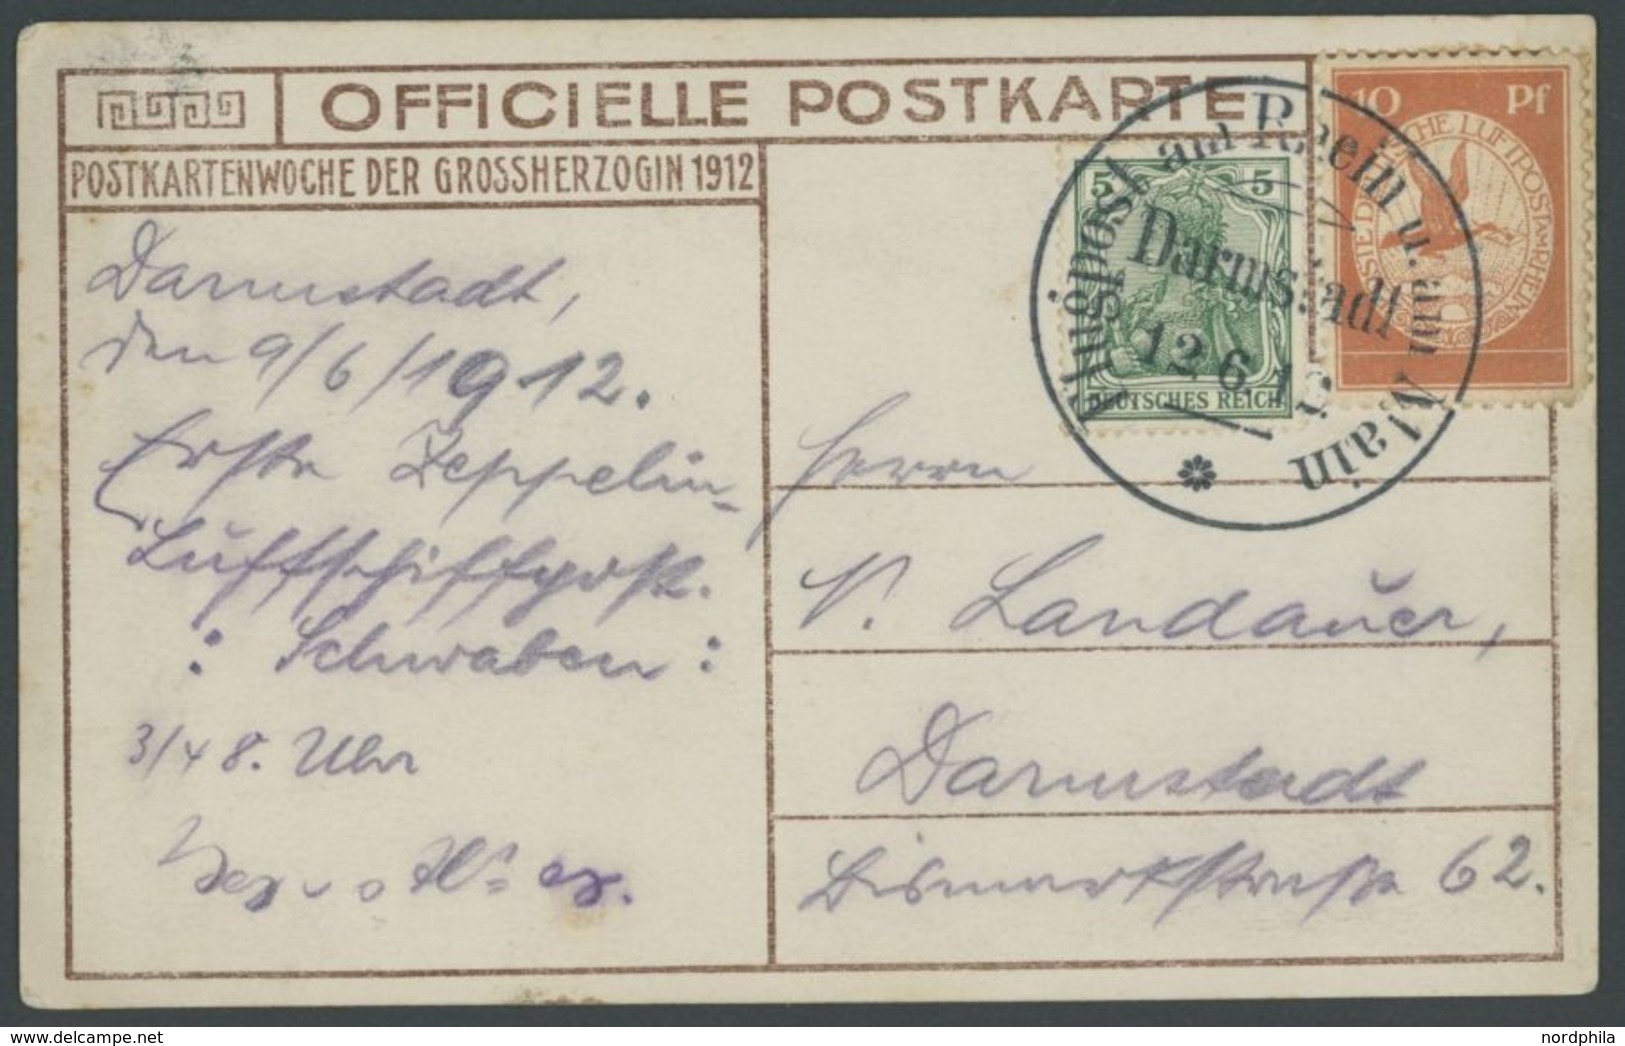 OFFICIELLE POSTKARTE
POSTKARTENWOCHE DER GROSSHERZOGIN 1912
Darmstadt,
den 9/6/1912.
Erste Zeppelin-
Luftschiffpost.
: Schwaben :
3/4 8. Uhr
Herrn
V. Landauer,
Darmstadt
Bismarkstraße 62.
5 5
DEUTSCHES REICH
10 Pf
LUFTPOST AM RHEIN
Flugpost am Rhein u. am Main
Darmstadt
12.6.12
nordphila